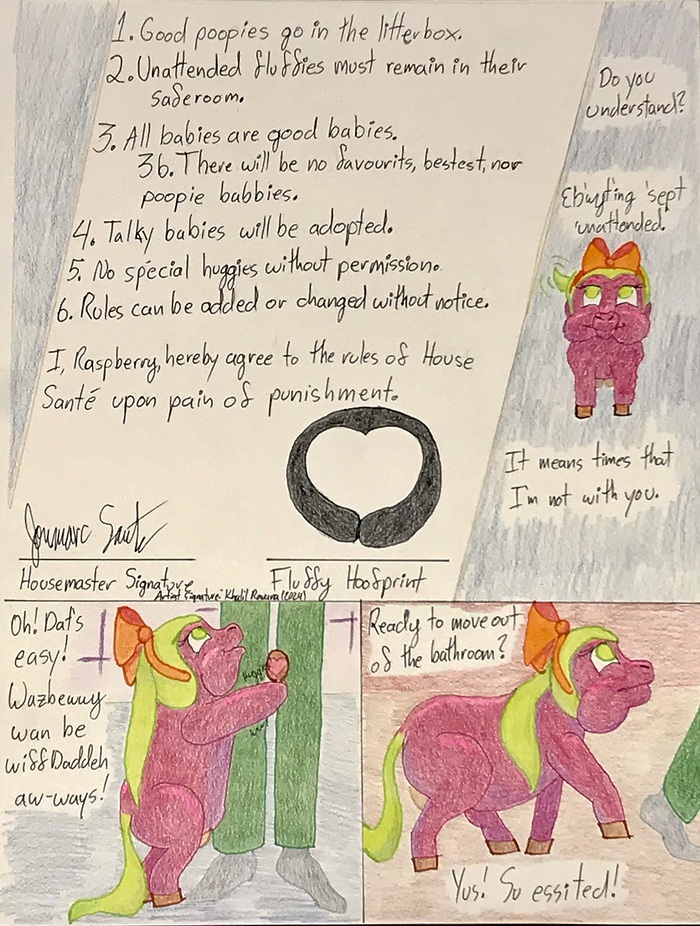 1. Good poopies go in the litterbox.
2. Unattended fluffies must remain in their
saferoom.
3. All babies are good babies.
3b. There will be no favourits, bestest, nor
poopie babbies.
4. Talky babies will be adopted.
5. No spécial huggies without permission.
6. Rules can be added or changed without notice.
I, Raspberry, hereby agree to the rules of House
Santé upon pain of punishment.
Housemaster Signature
Artist Signature: Khalil
(2024)
Fluffy Hoofprint
Do you
understand?
Eb'wyting 'sept
'unattended.'
It means times that
I'm not with you.
Oh! Dat's
easy!
Wazbewwy
wan be
wiff Daddeh
aw-ways!
Ready to move out
of the bathroom?
Yus! So essited!